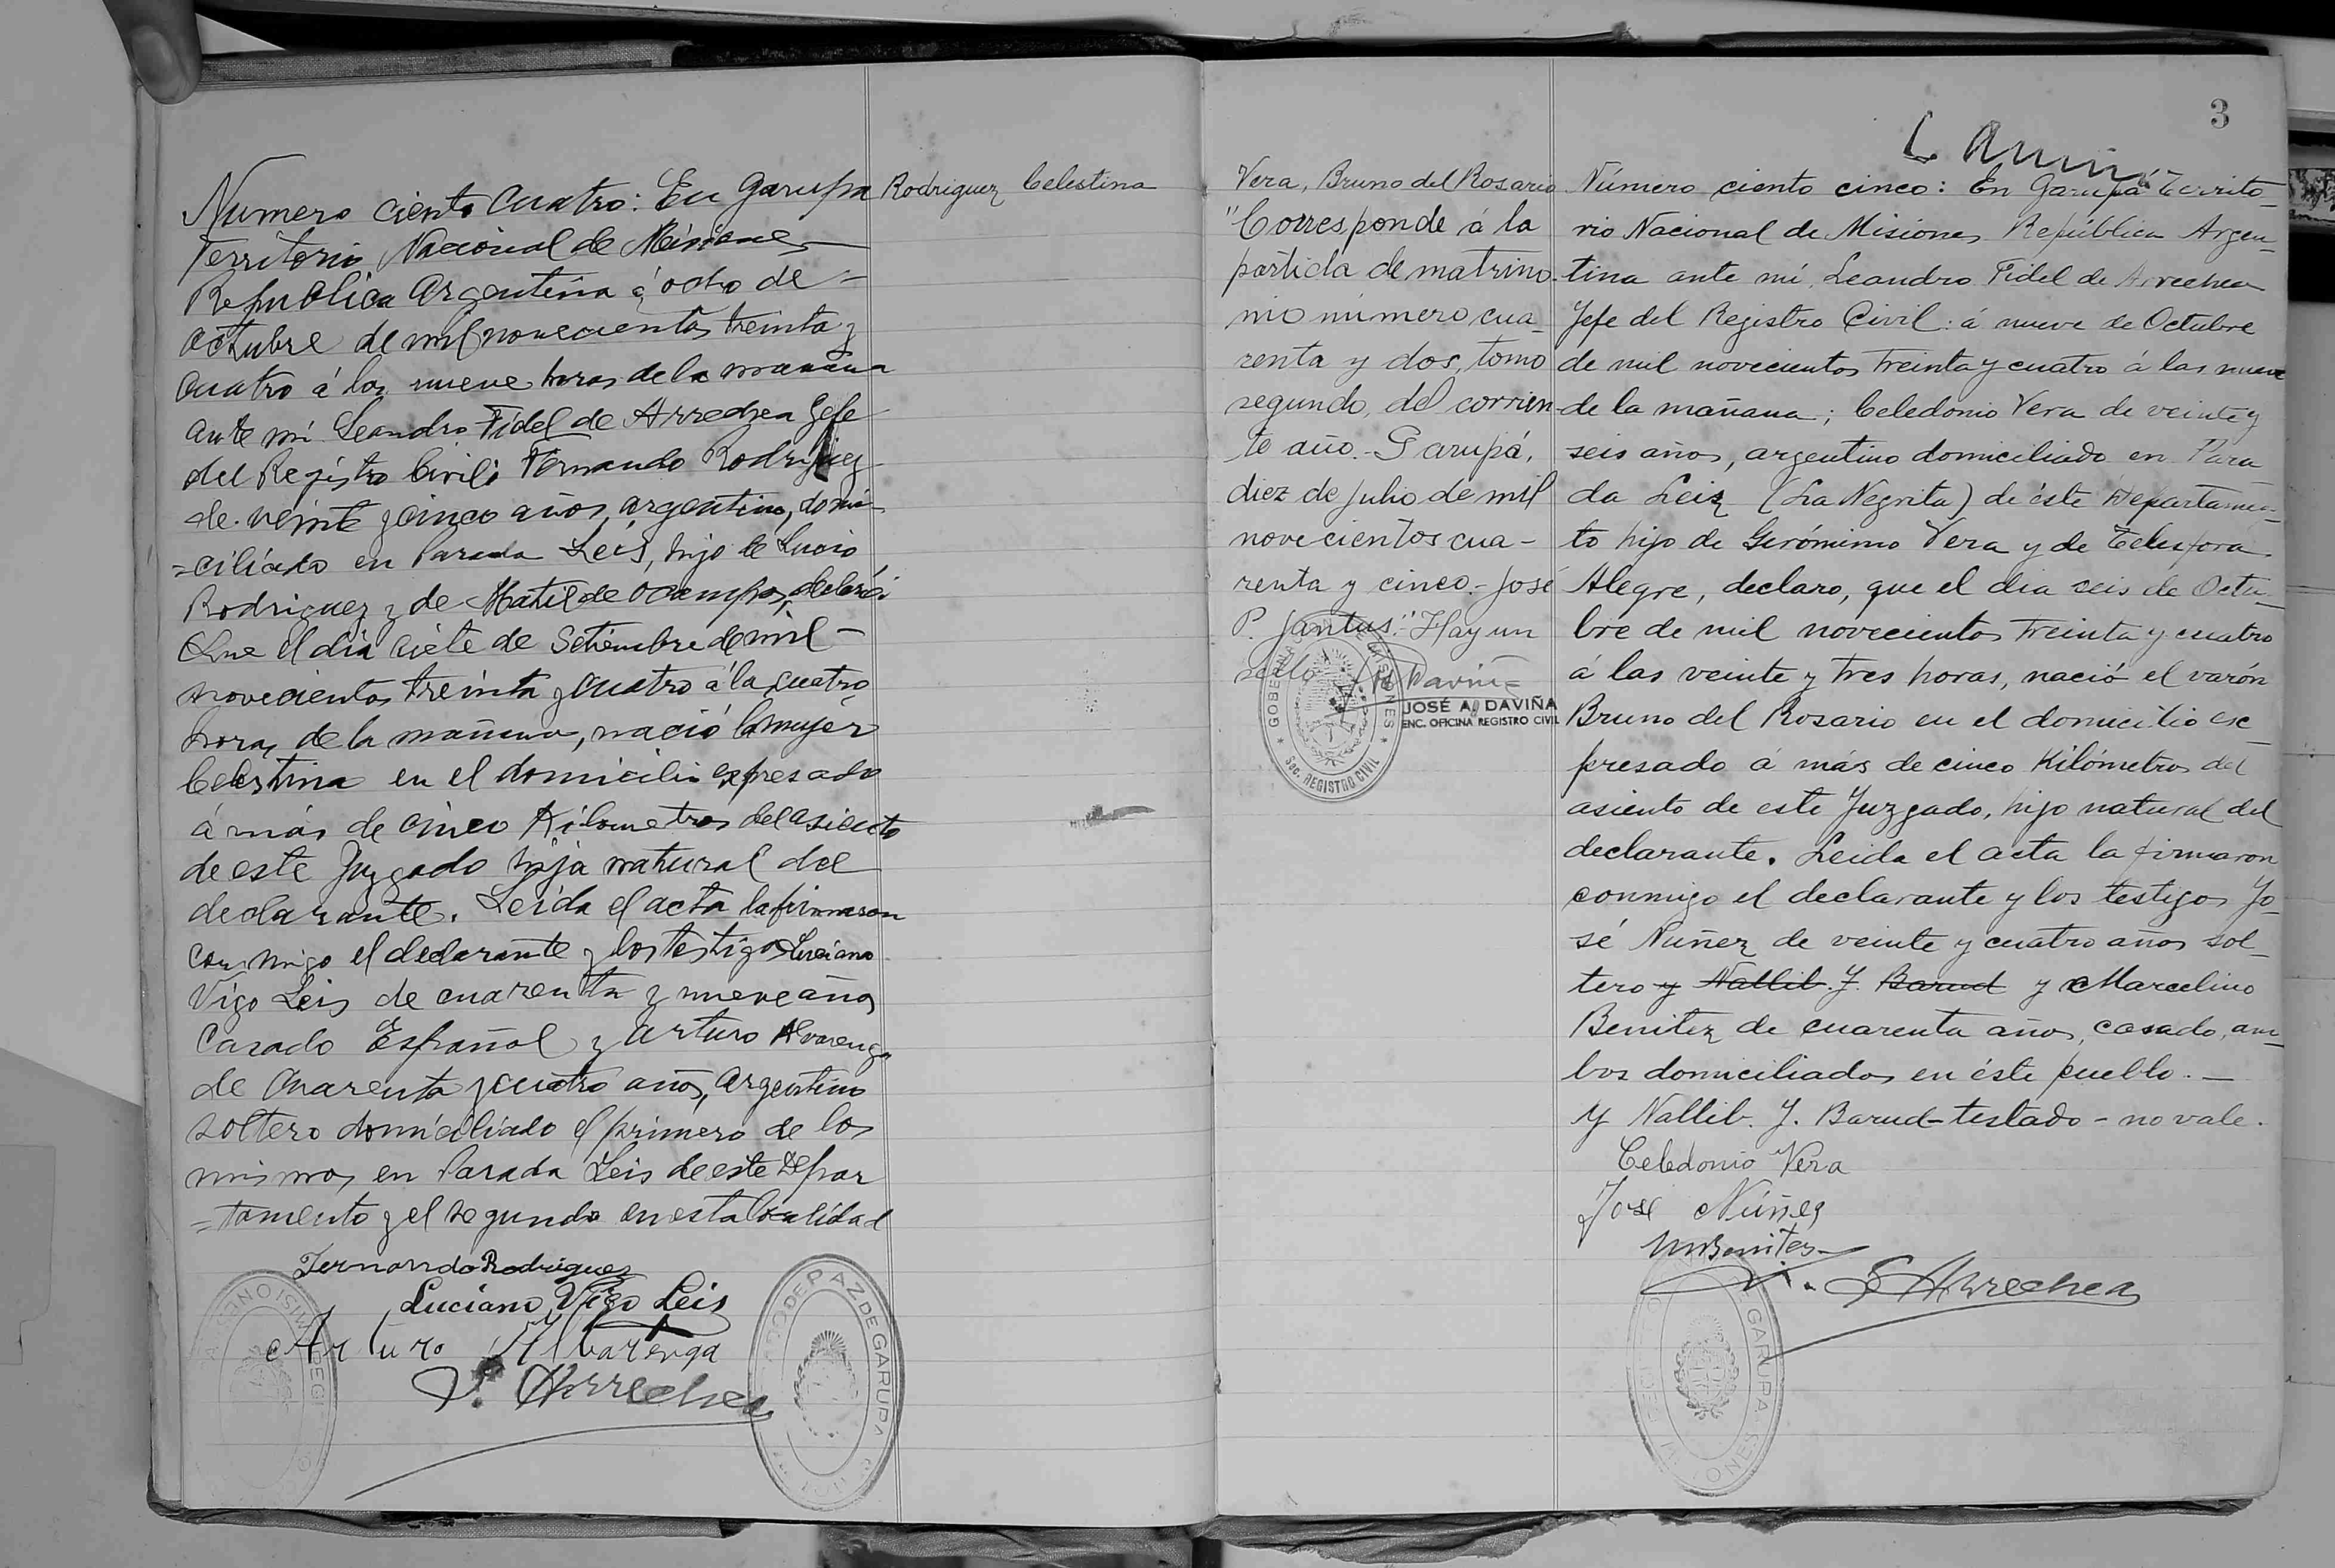 Numero ciento cuatro: En Garupa
Territorio Nacional de Misiones
Republica Argentina á ocho de
octubre de mil novecientos treinta y
cuatro á las nueve horas de la mañana
ante mi Leandro Fidel de Arrechea Gefe
del Registro Civil: Fernando Rodriguez
de veinte y cinco años, argentino, domi-
=ciliado en Parada Leis, hijo de Lucio
Rodriguez y de Matilde Ocampos, declaró:
Que el dia siete de Setiembre de mil
novecientos treinta y cuatro á la cuatro
horas de la mañana, nació la mujer
Celestina en el domicilio expresado
á más de cinco Kilometros del asiento
de este Juzgado hija natural del
declarante. Leida el acta la firmaron
con migo el declarante y los testigos Luciano
Vigo Leis de cuarenta y nueve años
Casado Español y Arturo Alvarenga
de cuarenta y cuatro años, argentino
soltero domiciliado el primero de los
mismos en Parada Leis de este Depar
=tamento y el segundo en esta localidad
Fernando Rodriguez
Luciano Vigo Leis
Arturo Albarenga
Arrechea
JUZGADO DE PAZ DE GARUPA
Rodriguez Celestina
Vera, Bruno del Rosario
"Corresponde á la
partida de matrimo-
nio número cua
renta y dos, tomo
segundo, del corrien-
te año.- Garupá,
diez de julio de mil
novecientos cua-
renta y cinco.- José
P. Jantus." Hay un
sello
JOSÉ A. DAVIÑA
ENC. OFICINA REGISTRO CIVIL
SEC. REGISTRO CIVIL
3
Número ciento cinco: En Garupá Territo-
rio Nacional de Misiones República Argen-
tina ante mí, Leandro Fidel de Arrechea
Jefe del Registro Civil: á nueve de Octubre
de mil novecientos treinta y cuatro á las nueve
de la mañana; Celedonio Vera de veinte y
seis años, argentino domiciliado en Para
da Leiz (La Negrita) de éste Departamen-
to hijo de Gerónimo Vera y de Telesfora
Alegre, declaro, que el dia seis de Octu-
bre de mil novecientos treinta y cuatro
á las veinte y tres horas, nació el varón
Bruno del Rosario en el domicilio ex-
presado á más de cinco Kilómetros del
asiento de este Juzgado, hijo natural del
declarante. Leida el acta la firmaron
conmigo el declarante y los testigos Jo-
sé Nuñez de veinte y cuatro años sol-
tero y Nallib. J. Barud y Marcelino
Benitez de cuarenta años, casado, am-
bos domiciliados en éste pueblo.—
Y Nallib. J. Barud-testado - no vale.
Celedonio Vera
José Núñez
M Benites
Arrechea